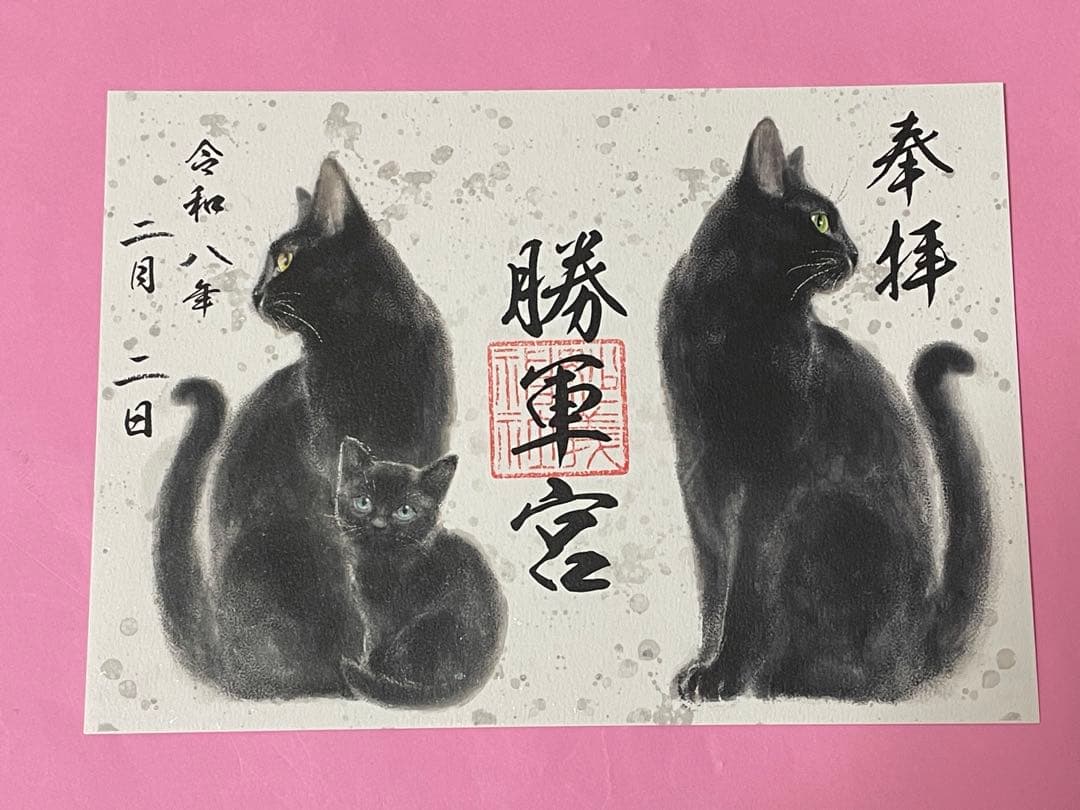 奉拝
勝軍宮
令和八年
二月二日